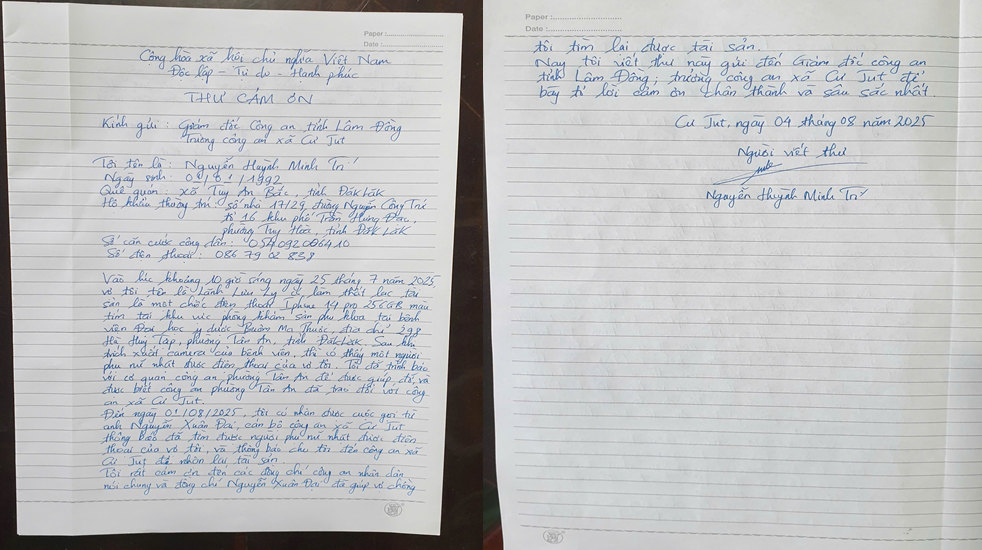 Paper :
Date :
Cộng hòa xã hội chủ nghĩa Việt Nam
Độc lập - Tự do - Hạnh phúc
THƯ CẢM ƠN
Kính gửi : Giám đốc Công an tỉnh Lâm Đồng
Trưởng công an xã Cư Jut
Tôi tên là : Nguyễn Huỳnh Minh Trí
Ngày sinh : 01/01/1992
Quê quán : xã Tuy An Bắc, tỉnh Đăk Lăk
Hộ khẩu thường trú : số nhà 17/29, đường Nguyễn Công Trứ
tổ 16 khu phố Trần Hưng Đạo,
phường Tuy Hoà, tỉnh Đăk Lăk
Số căn cước công dân : 054092006410
Số điện thoại : 086 79 02 838
Vào lúc khoảng 10 giờ sáng ngày 25 tháng 7 năm 2025,
vợ tôi tên là Lãnh Lưu Ly có làm thất lạc tài
sản là một chiếc điện thoại Iphone 14 pro 256GB màu
tím tại khu vực phòng khám sản phụ khoa tại bệnh
viện Đại học y dược Buôn Ma Thuộc, địa chỉ 298
Hà Huy Tập, phường Tân An, tỉnh Đăk Lăk. Sau khi
trích xuất camera của bệnh viện, thì có thấy một người
phụ nữ nhặt được điện thoại của vợ tôi. Tôi đã trình báo
với cơ quan công an phường Tân An để được giúp đỡ, và
được biết công an phường Tân An đã trao đổi với công
an xã Cư Jut.
Đến ngày 01/08/2025, tôi có nhận được cuộc gọi từ
anh Nguyễn Xuân Đại, cán bộ công an xã Cư Jut
thông báo đã tìm được người phụ nữ nhặt được điện
thoại của vợ tôi, và thông báo cho tôi đến công an xã
Cư Jut để nhận lại tài sản
Tôi rất cảm ơn đến các đồng chí công an nhân dân
nói chung và đồng chí Nguyễn Xuân Đại đã giúp vợ chồng
Paper :
Date :
tôi tìm lại được tài sản.
Nay tôi viết thư này gửi đến Giám đốc công an
tỉnh Lâm Đồng, trưởng công an xã Cư Jut để
bày tỏ lời cảm ơn chân thành và sâu sắc nhất.
Cư Jut, ngày 04 tháng 08 năm 2025
Người viết thư
Nguyễn Huỳnh Minh Trí